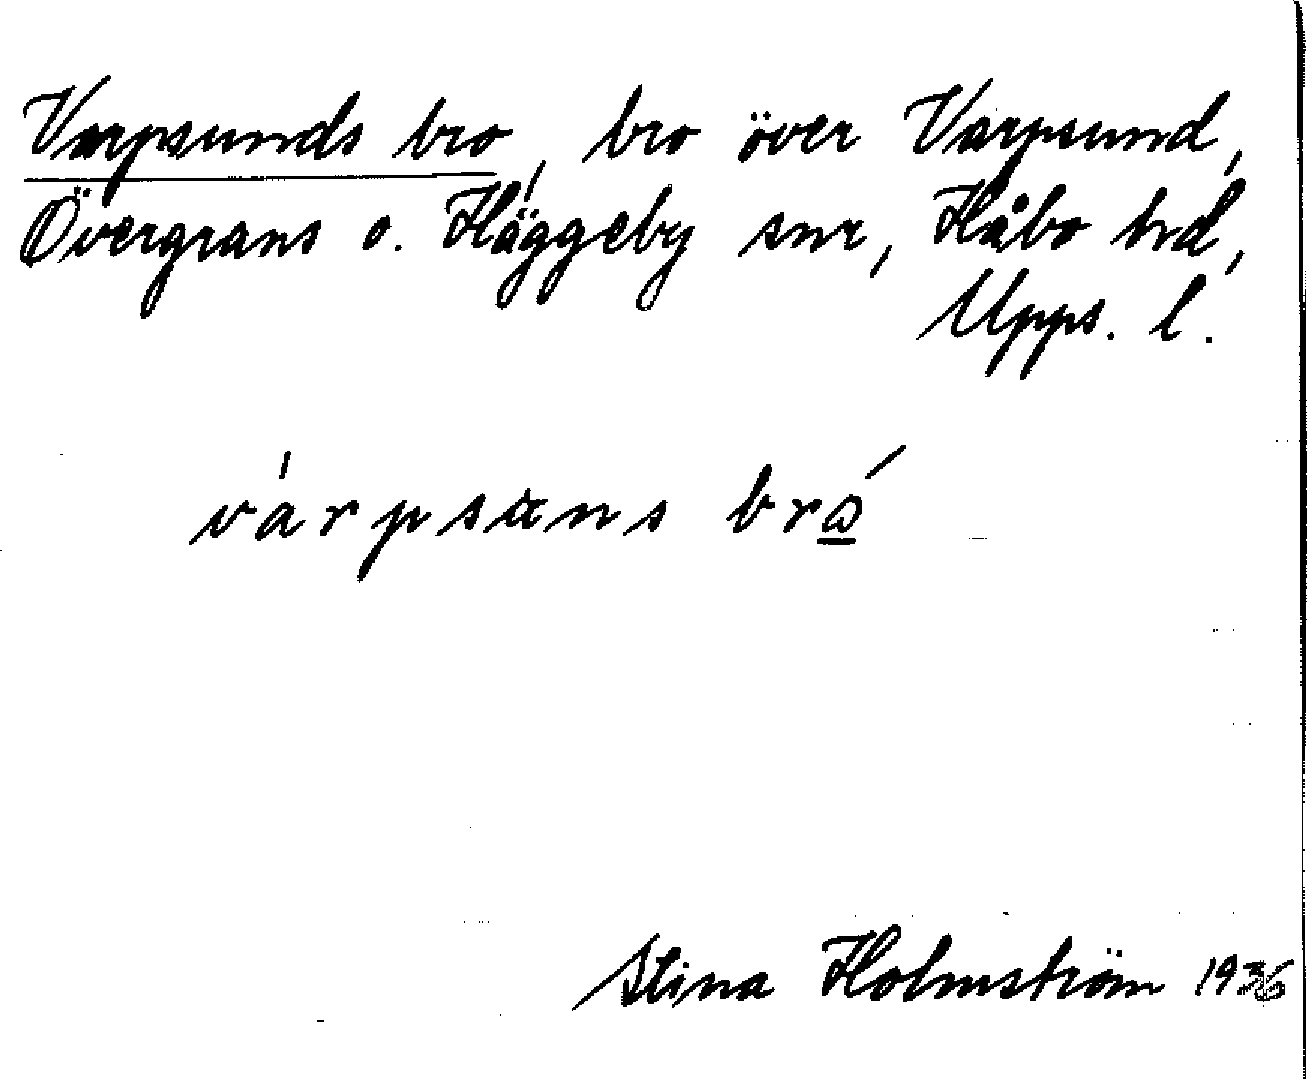 Varpsunds bro, bro över Varpsund,
Övergrans o. Häggeby snr, Håbo hd,
Upps. l.
várpsɯns brɷ́
Stina Holmström 1936